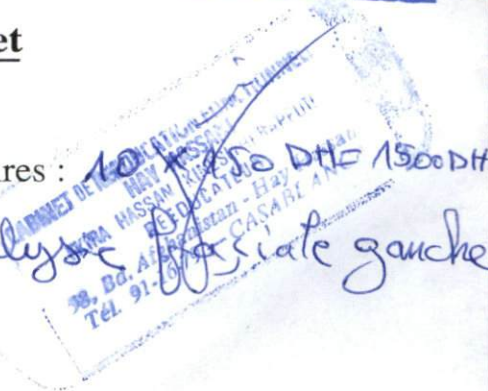 et
res : 10 X 150 DH = 1500 DH
lyse faciale gauche
CABINET DE REEDUCATION FONCTIONNEL
HAY HASSANI
HASSAN
REEDUCATEUR
38, Bd. Afghanistan - Hay Hassani
CASABLANCA
Tél. 91-